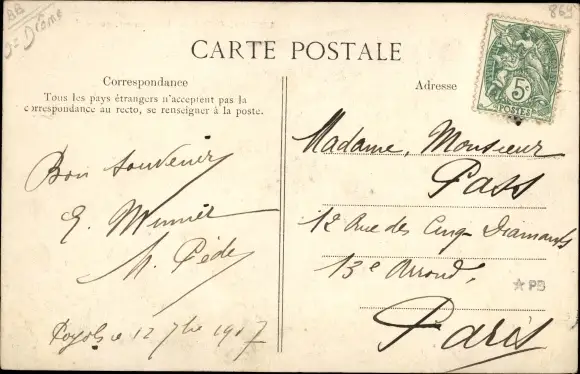 BB
Drôme
869
CARTE POSTALE
Correspondance
Tous les pays étrangers n'acceptent pas la
correspondance au recto, se renseigner à la poste.
Adresse
5c
POSTES
Bon souvenir
E. Munier
M. Pède
le 12 7bre 1907
Madame, Monsieur
Pass
12 Rue des Cinq Diamants
13e Arrond,
Paris
PB